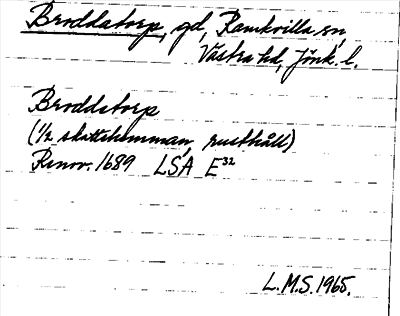 Broddatorp, gd, Ramkvilla sn,
Västra hd, Jönk. l.
Broddetorp
(1/2 skattehemman, rusthåll)
Renov. 1689 LSA E32
L.M.S. 1965.